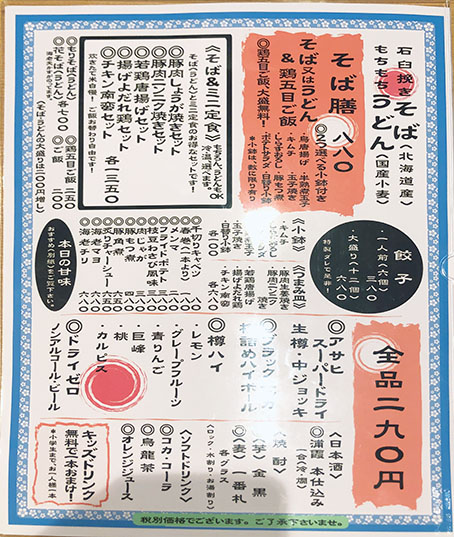 石臼挽き
そば〈北海道産〉
もちもちうどん〈国産小麦〉
そば膳 八八〇
そば又はうどん
& 鶏五目ご飯
◎鶏五目ご飯、大盛り無料！
2つ選べる小鉢付き
・烏唐揚げ
・半熟煮玉子
・キムチ
・玉子焼き
・豚もつ煮
・ポテトサラダ
・日替り小鉢
《そば&ミニ定食》
冷・温選べます。
そば&うどんとミニ定食のお得なセットです！
◎豚肉しょうが焼きセット
◎豚肉ニンニク焼きセット
◎若鶏唐揚げセット
◎揚げよだれ鶏セット
◎チキン南蛮セット
各一三五〇
炊きたて米自慢！ご飯お替わり自由です！
◎もりそば（うどん）
◎花そば（うどん）
各七〇〇
◎鶏五目ご飯 二五〇
◎ご飯 二〇〇
《そば・うどんの大盛りは三〇〇円増し》
餃子
・一人前（六個） 三八〇
・大盛り（十二個） 六八〇
特製ダレで是非！
《小鉢》
・キムチ
・玉子焼き
・日替り小鉢
各二〇〇
《つまみ皿》
・豚肉生姜焼き
・豚肉ニンニク焼き
・若鶏唐揚げ
・揚げよだれ鶏
・チキン南蛮
各六八〇
千切りキャベツ
春巻（一本より）
メンマ
フライドポテト
枝豆わさび風味
肉じゃが
豚もつ煮
豚角煮
炙りチャーシュー
海老チリ
海老マヨ
本日の甘味
おすすめ別紙をご覧下さい。
全品二九〇円
◎アサヒ
スーパードライ
生樽・中ジョッキ
◎ブラックニッカ
樽詰めハイボール
◎樽ハイ
・レモン
・グレープフルーツ
・青りんご
・巨峰
・桃
・カルピス
◎ドライゼロ
ノンアルコール・ビール
〈日本酒〉
◎浦霞 本仕込み
一合（冷・燗）
〈焼酎〉
◎〈芋〉一金黒
◎〈麦〉一番札
各グラス
（ロック・水割り・お湯割り）
〈ソフトドリンク〉
◎コカ・コーラ
◎烏龍茶
◎オレンジジュース
キッズドリンク
無料で一本おまけ！
*小学生まで、お一人様一本
税別価格でございます。ご了承下さいませ。